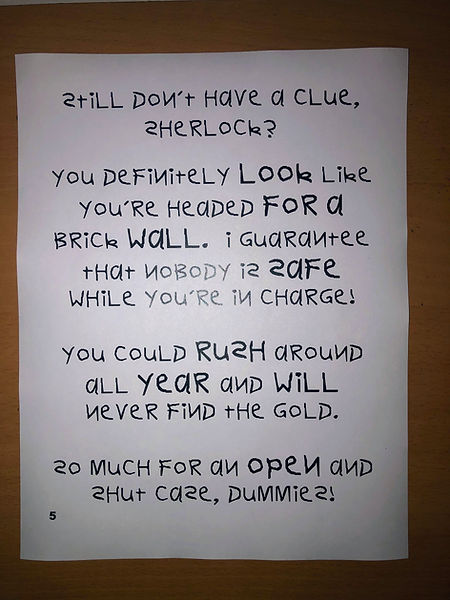 Still don't have a clue,
Sherlock?
You definitely look like
you're headed for a
brick wall. I guarantee
that nobody is safe
while you're in charge!
You could rush around
all year and will
never find the gold.
So much for an open and
shut case, dummies!
5